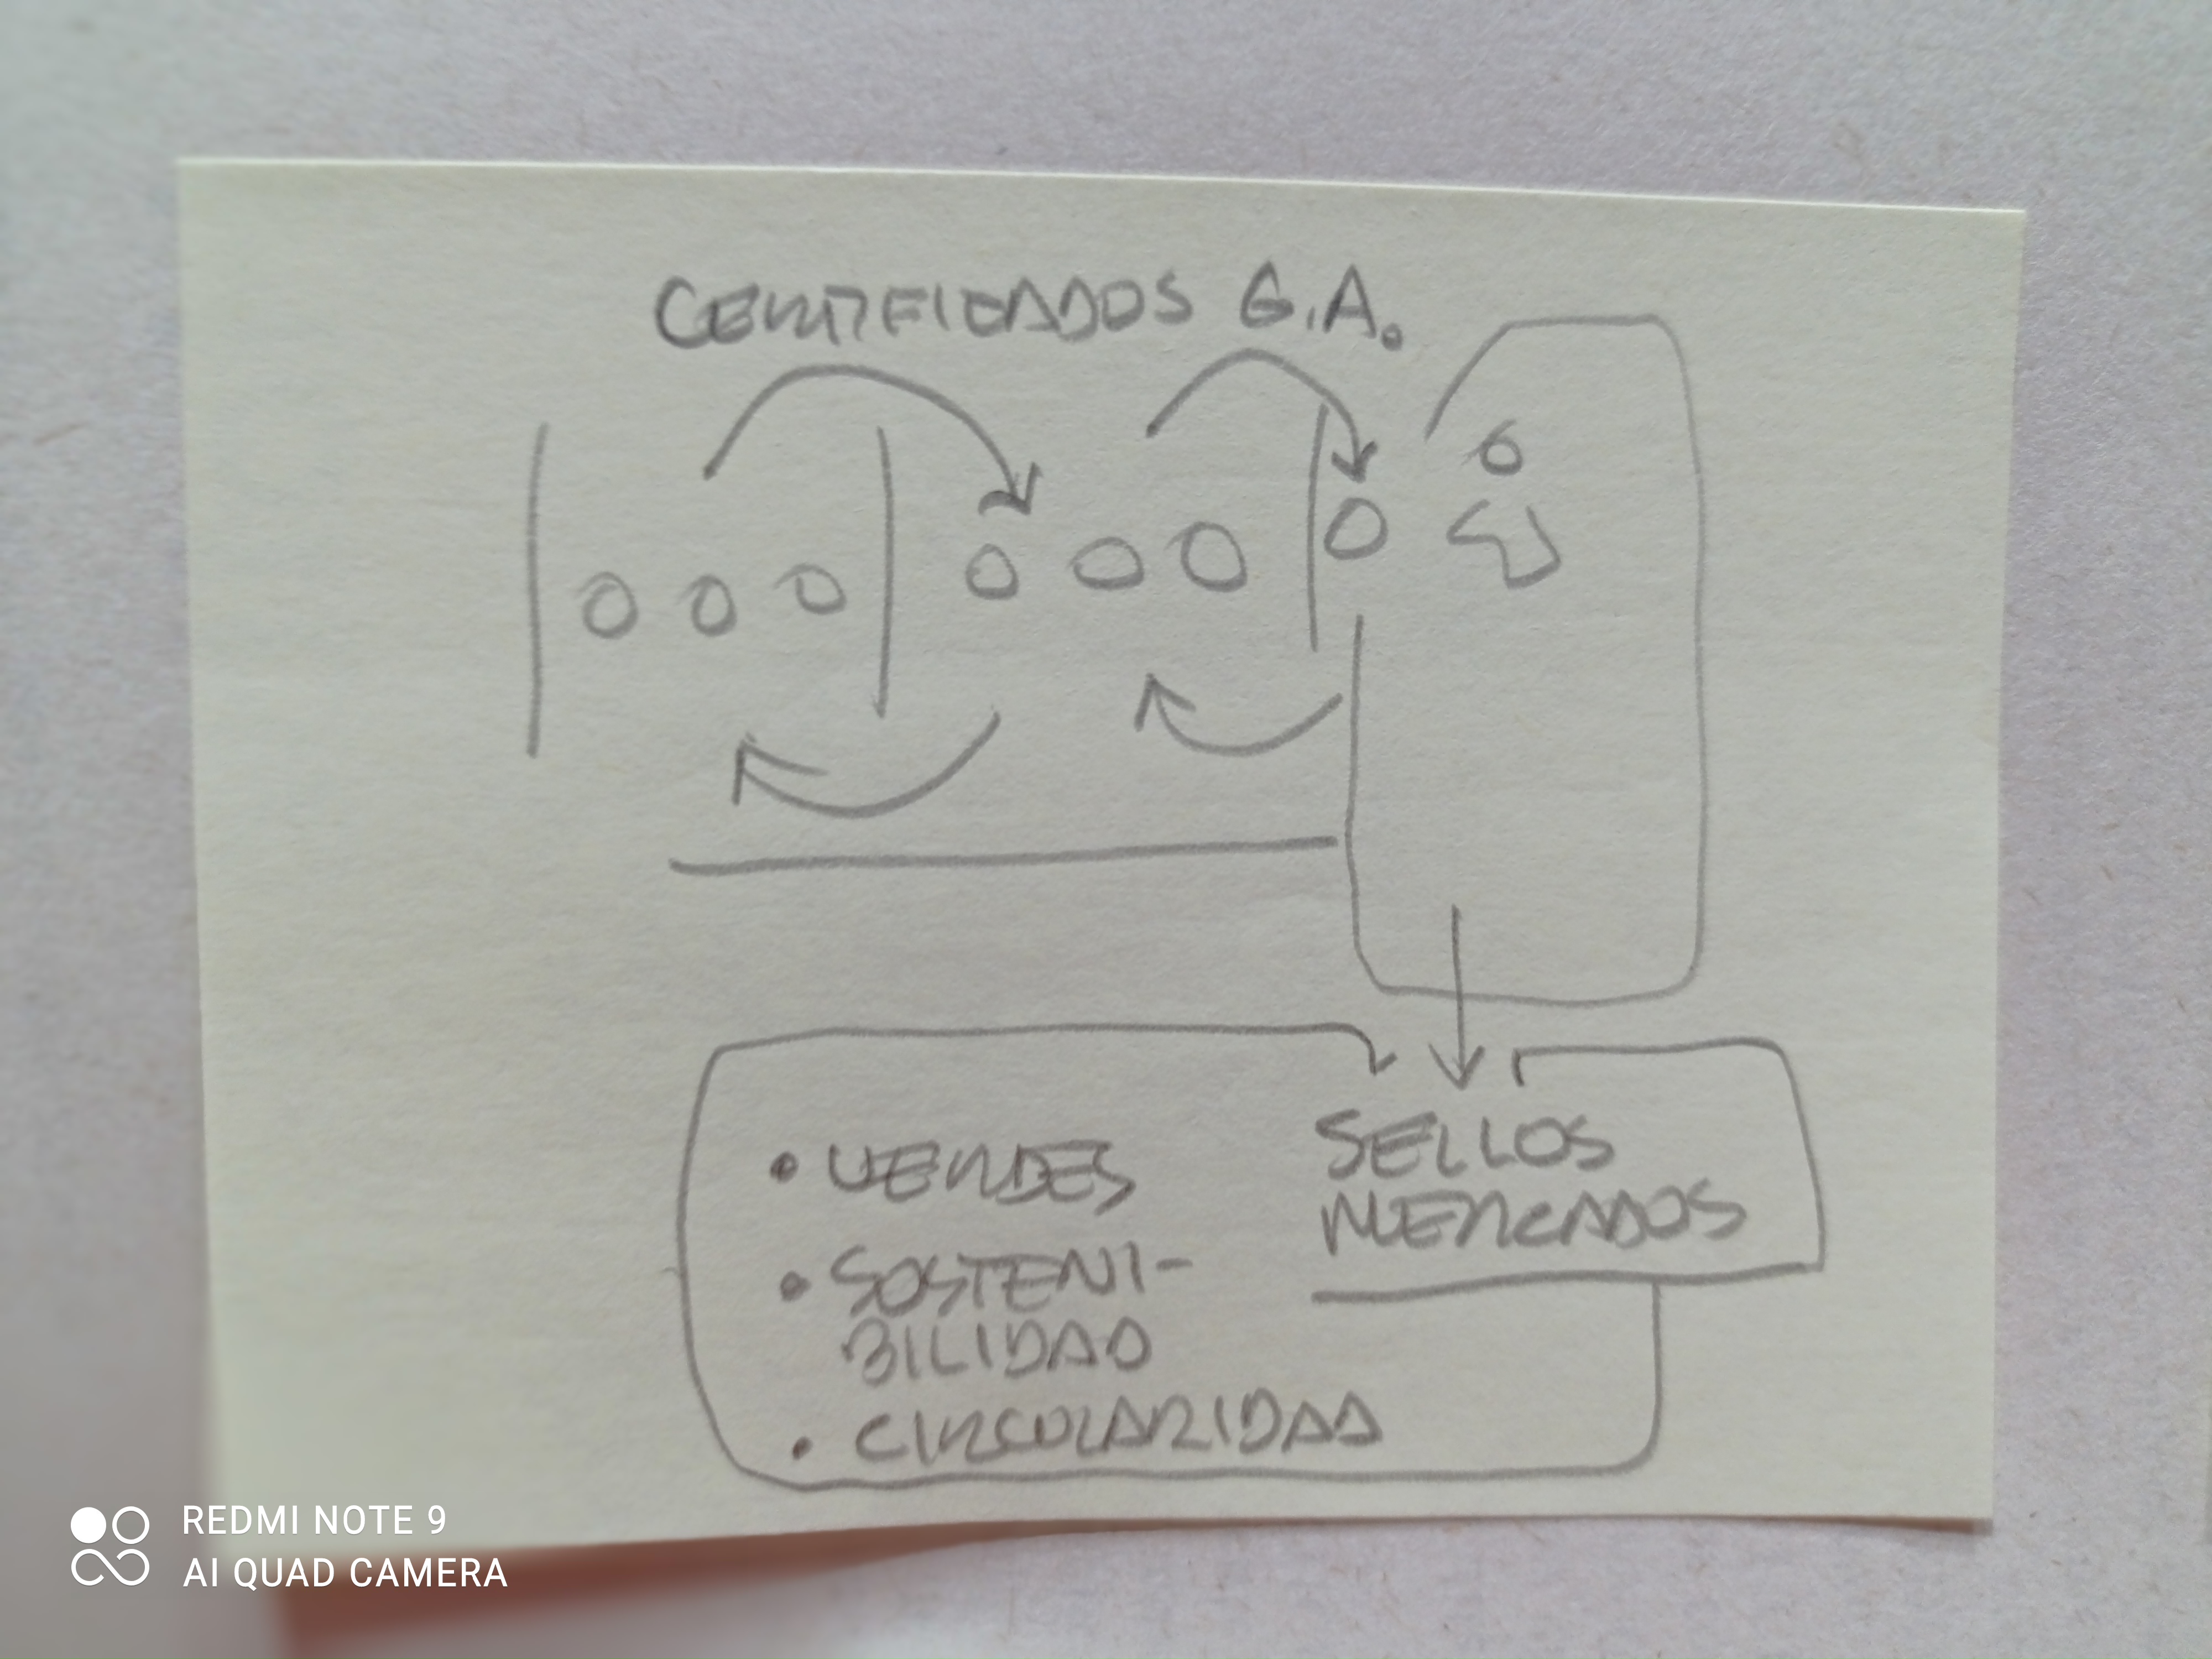 CERTIFICADOS G.A.
SELLOS
MERCADOS
• VERDES
• SOSTENI-
BILIDAD
• CIRCULARIDAD
REDMI NOTE 9
AI QUAD CAMERA